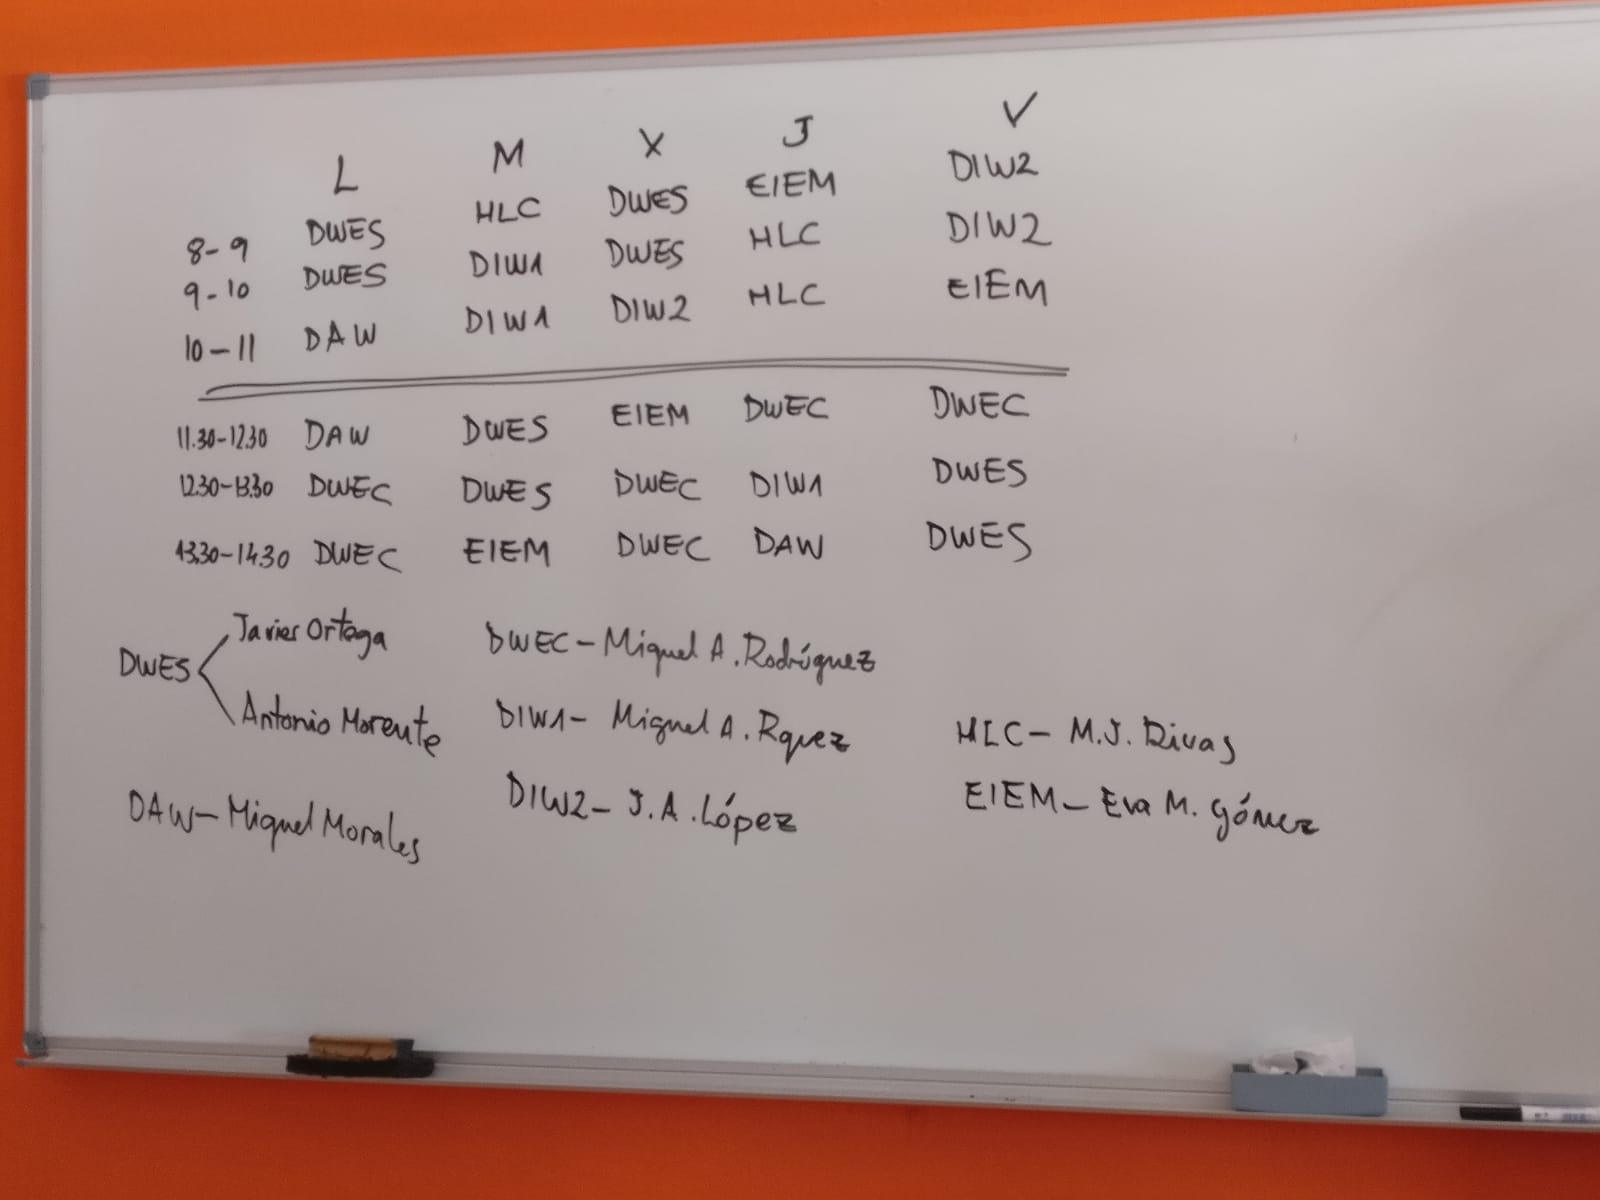 L M X J V
8-9 DWES HLC DWES EIEM DIW2
9-10 DWES DIW1 DWES HLC DIW2
10-11 DAW DIW1 DIW2 HLC EIEM
11.30-12.30 DAW DWES EIEM DWEC DWEC
12.30-13.30 DWEC DWES DWEC DIW1 DWES
13.30-14.30 DWEC EIEM DWEC DAW DWES
DWES
Javier Ortega
Antonio Morente
DAW-Miguel Morales
DWEC-Miguel A. Rodríguez
DIW1- Miguel A. Rquez
DIW2- J.A. López
HLC- M.J. Rivas
EIEM- Eva M. Gómez